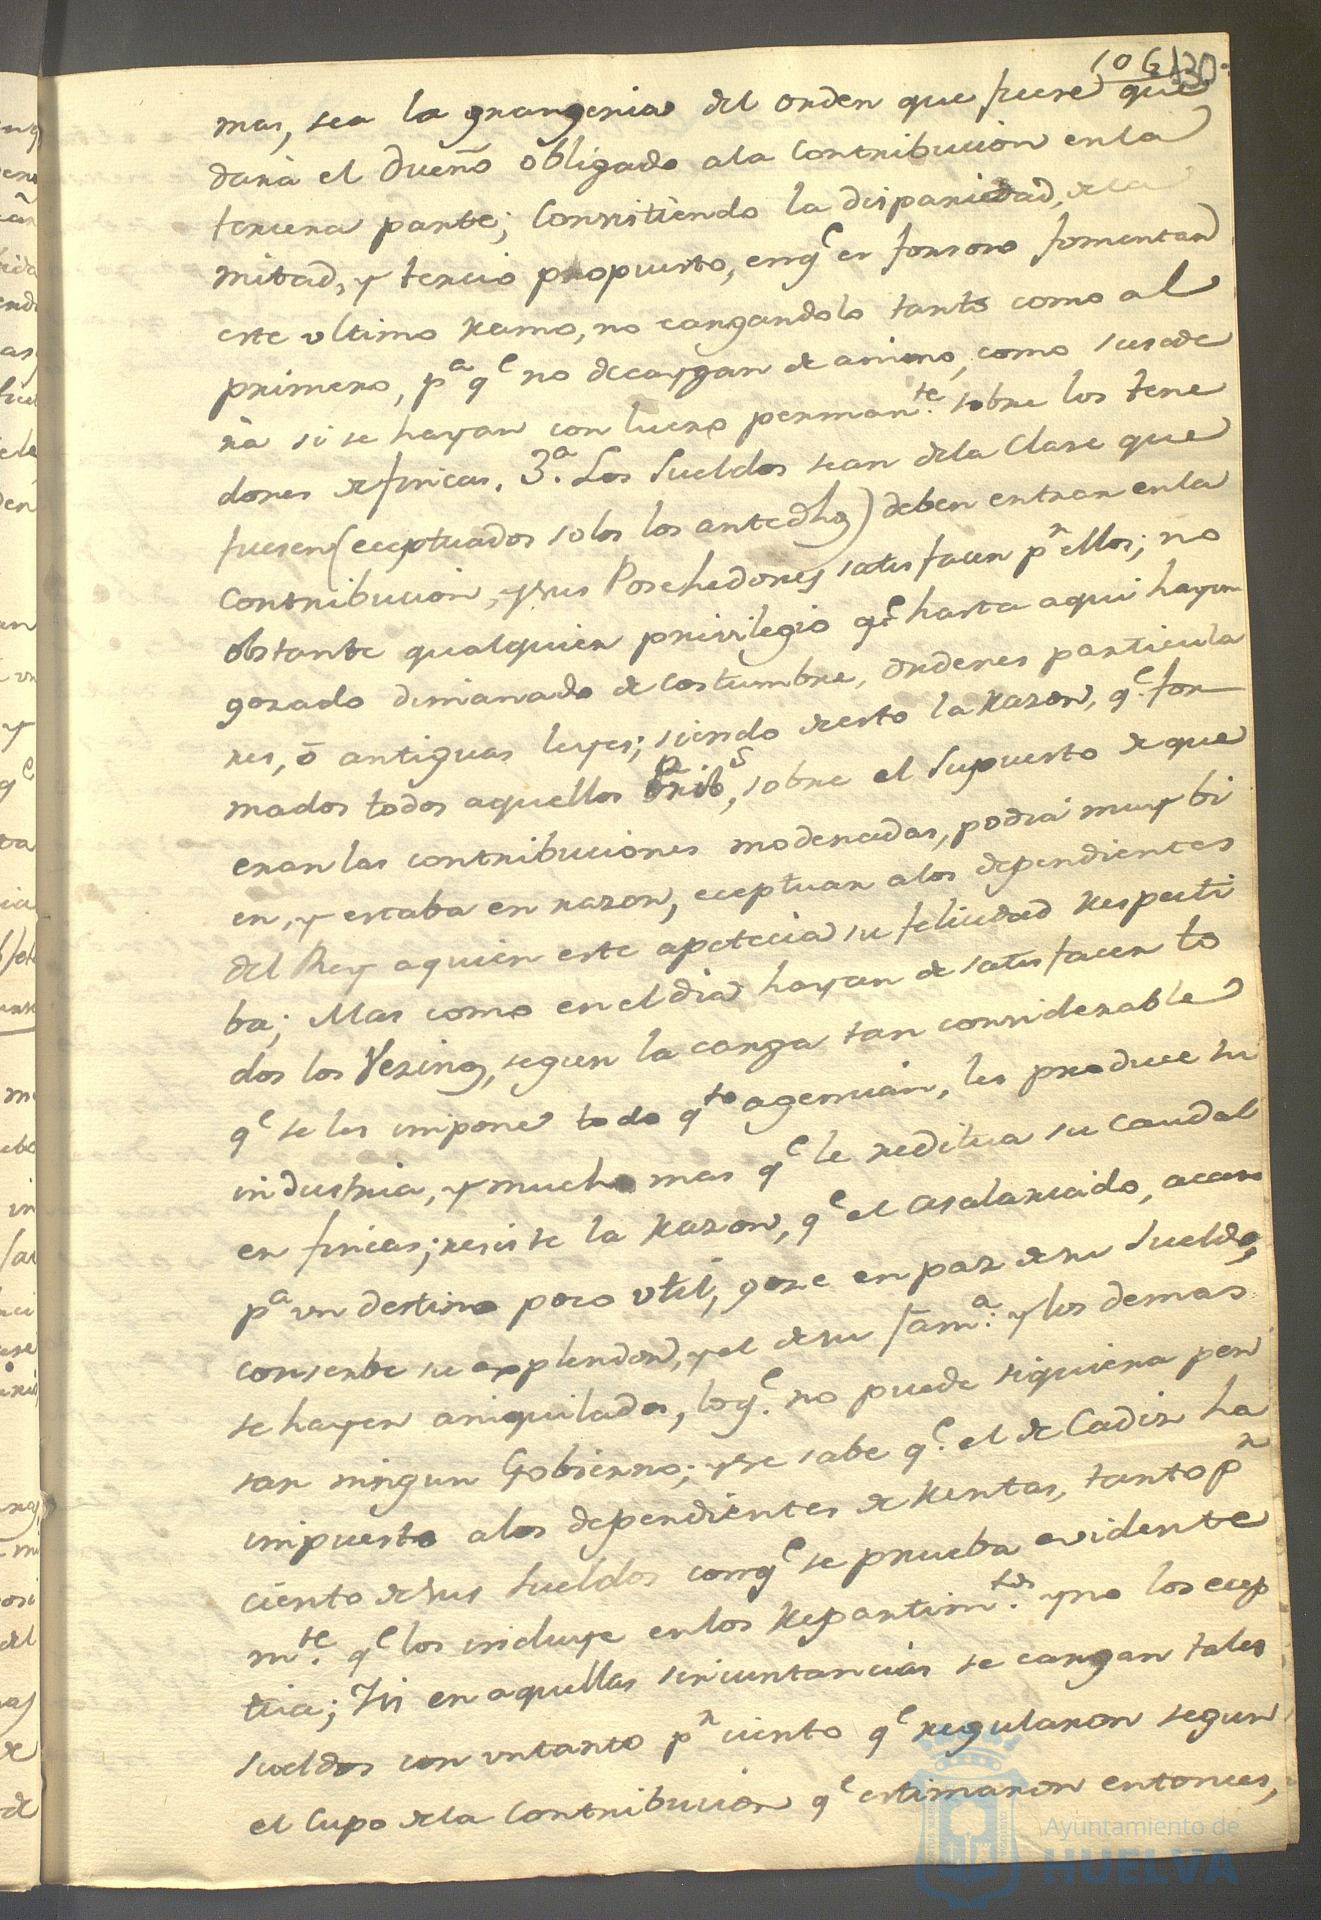 106 130.
mas, sea la grangeria del orden que fuere que
dará el dueño obligado ala Contribucion enla
tercera parte; Consistiendo la disparidad, dela
mitad, y tercio propuesto, enq.e es forsoso fomentar
este ultimo ramo, no cargandolo tanto como al
primero, p.a q.e no decaygan de animo, como sucede
rá si se hayan con lucro perman.te sobre los tene
dores de fincas. 3.a Los Sueldos sean dela Clase que
fuesen (eceptuados solos los antedhs) deben entrar enla
Contribucion, y sus Posehedores satisfacer p.r ellos; no
obstante qualquier privilegio q.e hasta aqui hayan
gozado dimanado de costumbre, ordenes particula
res, ó antiguas leyes; siendo desto la razon, q.e for
mados todos aquellos prib.s, sobre el supuesto de que
eran las contribuciones moderadas, podia muy bi
en, y estaba en razon, eceptuar alos dependientes
del Rey aquien este apetecia su felicidad respecti
ba; Mas como enel dia hayan de satisfacer to
dos los Vezinos, segun la carga tan considerable
q.e se les impone todo q.to agencian, les produce su
industria, y mucho mas q.e le reditua su caudal
en fincas; resiste la razon, q.e el asalariado, acaso
p.a un destino poco util, goze en paz desu Sueldo,
conserbe su explendor, y el desu fam.a: y los demas
se hayen aniquilados, loq.e no puede siquiera pen
sar ningun Gobierno; y se sabe q.e el de Cadiz ha
impuesto alos dependientes de Rentas, tanto p.r
ciento desus sueldos conq.e se prueba evidente
m.te q.e los incluye enlos Repartim.tos y no los ecep
túa; Y si en aquellas sircuntancias se cargan tales
sueldos con untanto p.r ciento q.e regularon segun
el Cupo dela Contribucion q.e estimaron entonces,
Ayuntamiento de
HUELVA